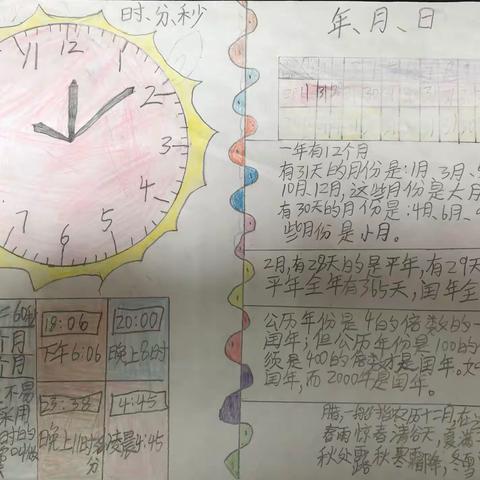 时、分、秒
11 12 1
2
3
4
5
6
7
=60秒
个月
个月
不易
采用
时的
叫做
18:06
下午6:06
20:00
晚上8时
23:38
晚上11时
分
4:45
凌晨4:45
年、月、日
一年有12个月
有31天的月份是:1月、3月、
10月、12月,这些月份是大月
有30天的月份是:4月、6月、
些月份是小月。
2月,有28天的是平年,有29天
平年全年有365天,闰年全
公历年份是4的倍数的一
闰年;但公历年份是100的
须是400的倍数才是闰年。如
闰年,而2000年是闰年。
腊,一般时指农历十二月,在
春雨惊春清谷天,夏满
秋处露秋寒霜降,冬雪